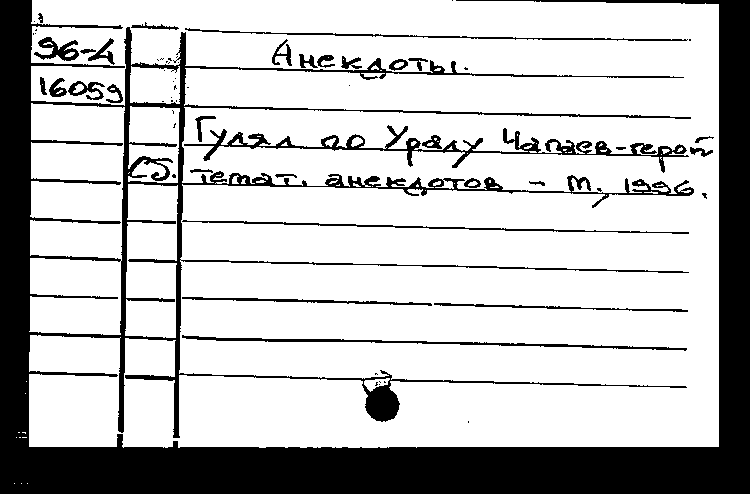 96-4 Анекдоты.
16059
Гулял по Уралу Чапаев-герой
Сб. темат. анекдотов - М., 1996.